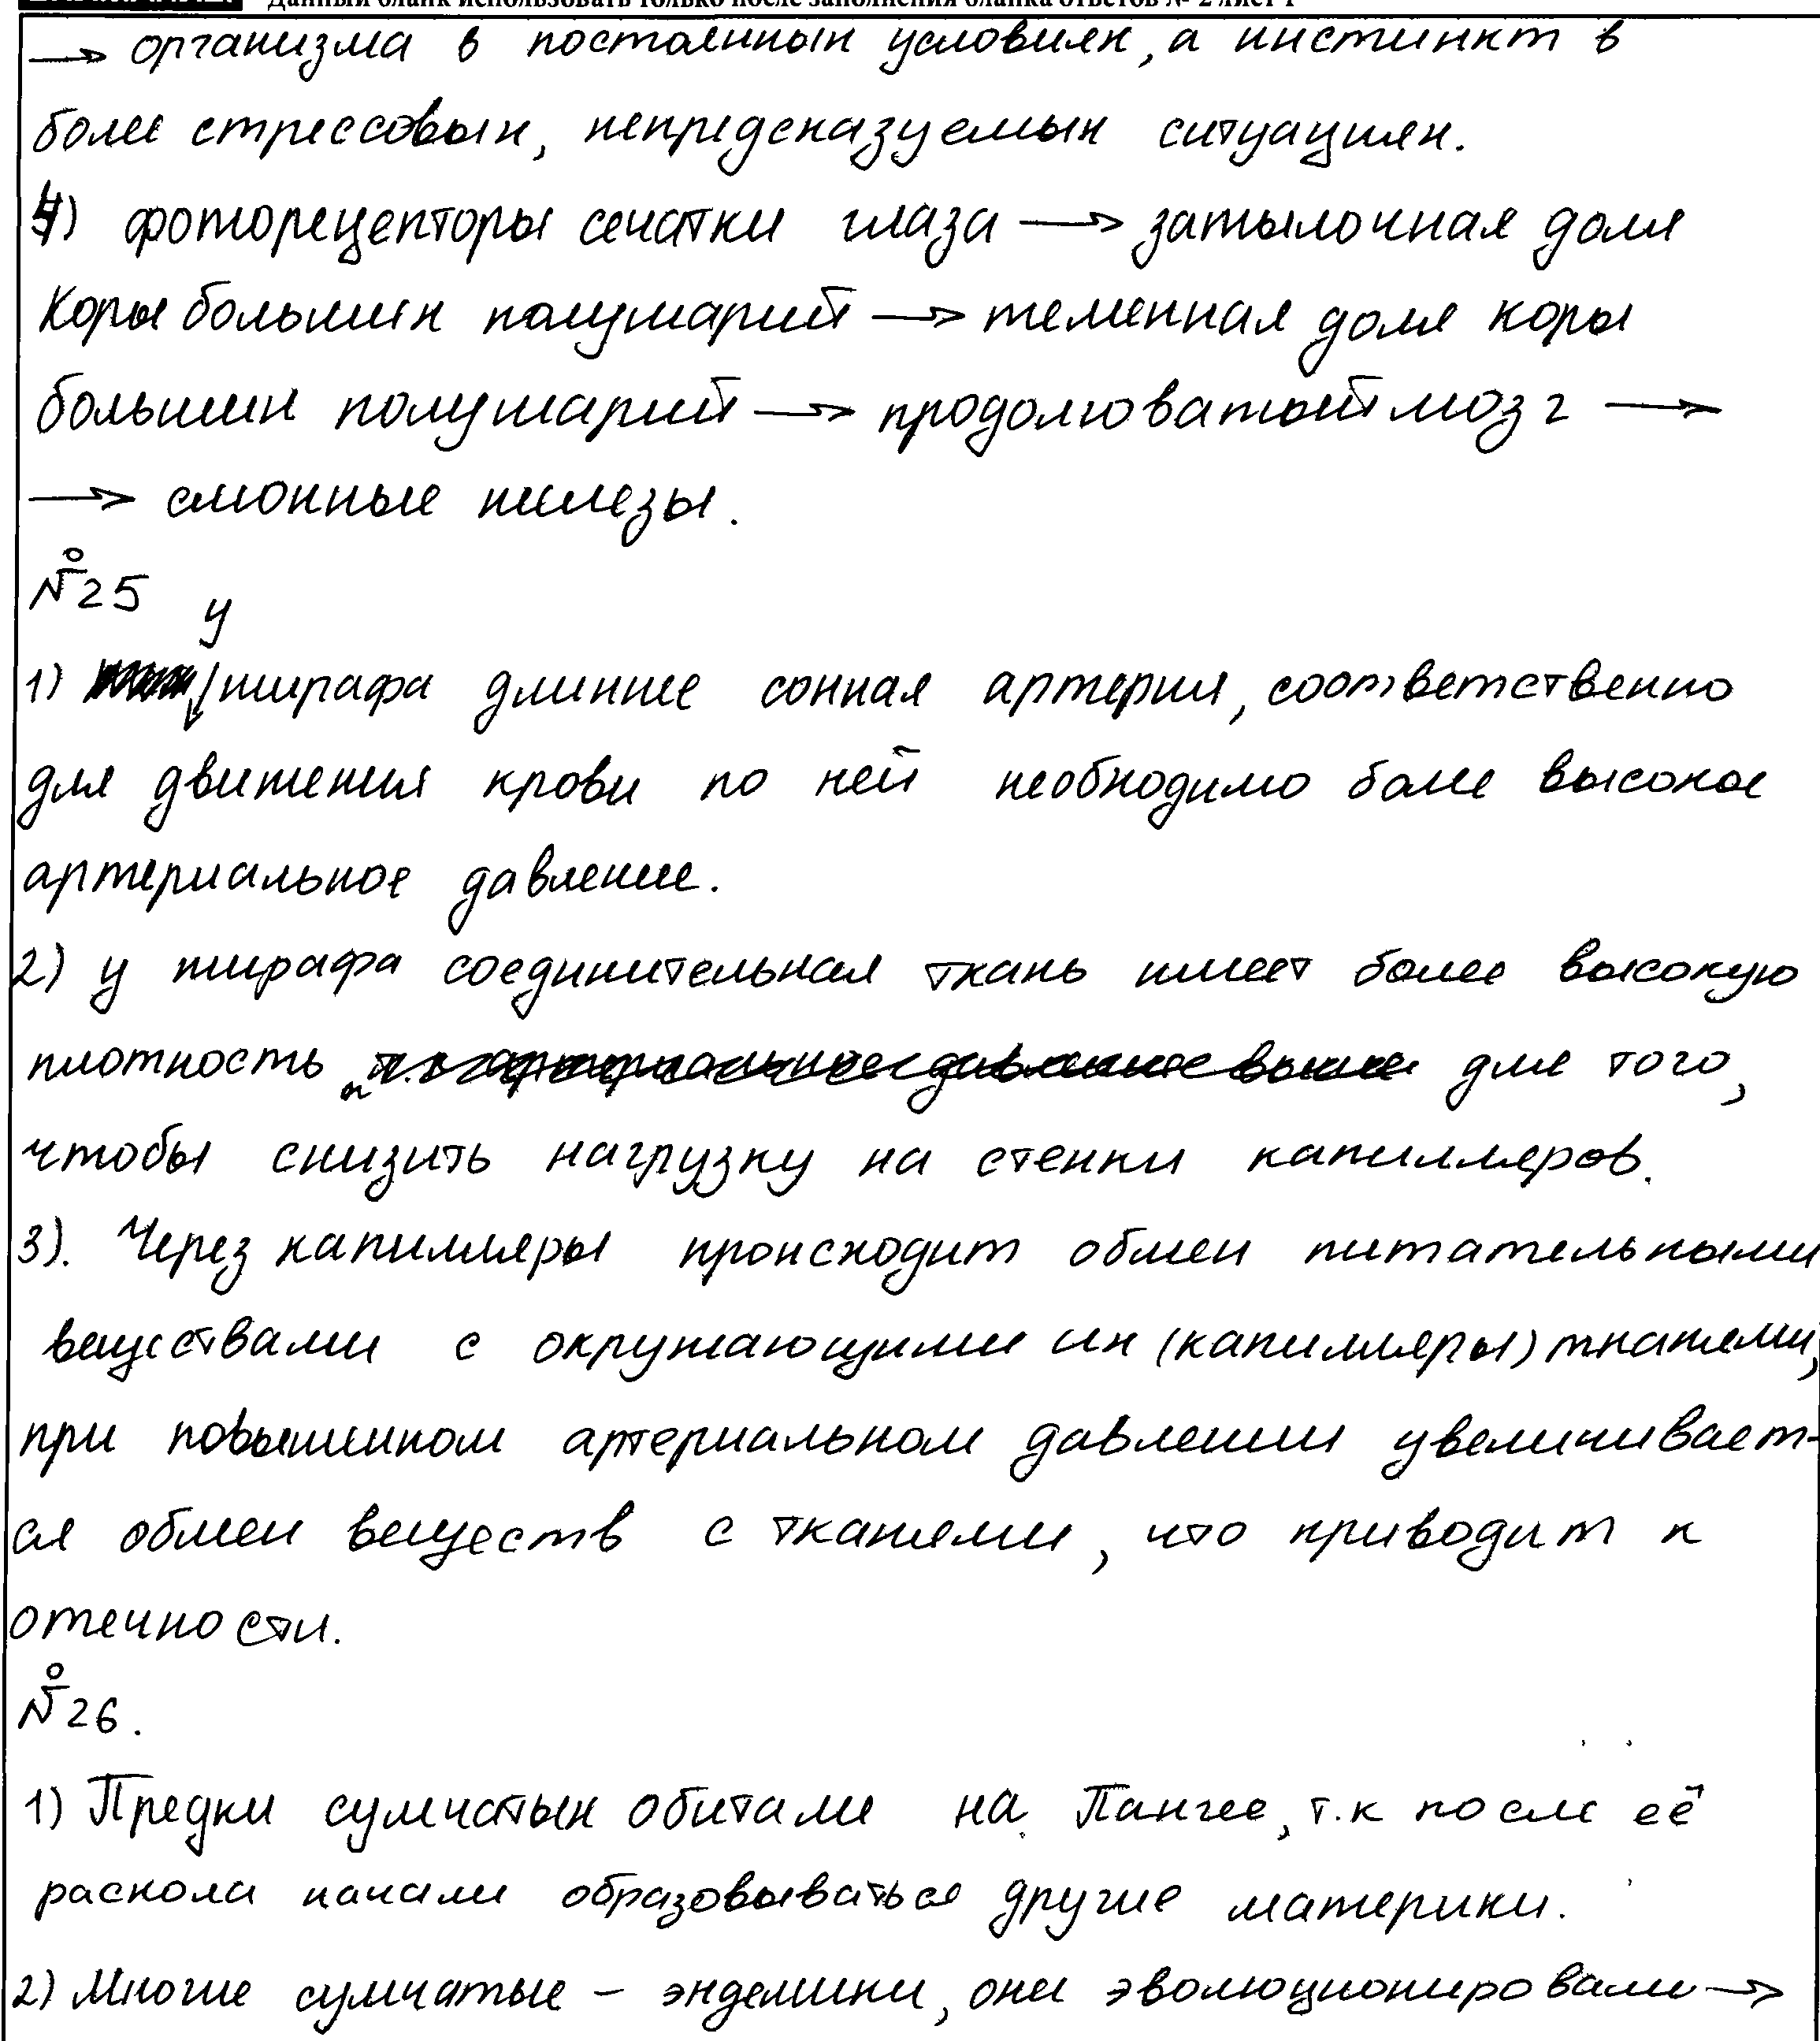 Данный бланк использовать только после заполнения бланка ответов № 2 лист 1
→ организма в постоянных условиях, а инстинкт в
более стрессовых, непредсказуемых ситуациях.
4) фоторецепторы сечатки глаза → затылочная доля
коры больших полушарий → теменная доля коры
больших полушарий → продолговатый мозг →
→ слюнные железы.
№25
у
1) жирафа длиннее сонная артерия, соответственно
для движения крови по ней необходимо более высокое
артериальное давление.
2) у жирафа соединительная ткань имеет более высокую
плотность для того,
чтобы снизить нагрузку на стенки капилляров.
3). Через капилляры происходит обмен питательными
веществами с окружающими их (капилляры) тканями,
при повышенном артериальном давлении увеличивает-
ся обмен веществ с тканями, что приводит к
отечности.
№26.
1) Предки сумчатых обитали на Пангее, т.к после её
раскола начали образовываться другие материки.
2) Многие сумчатые – эндемики, они эволюционировали →